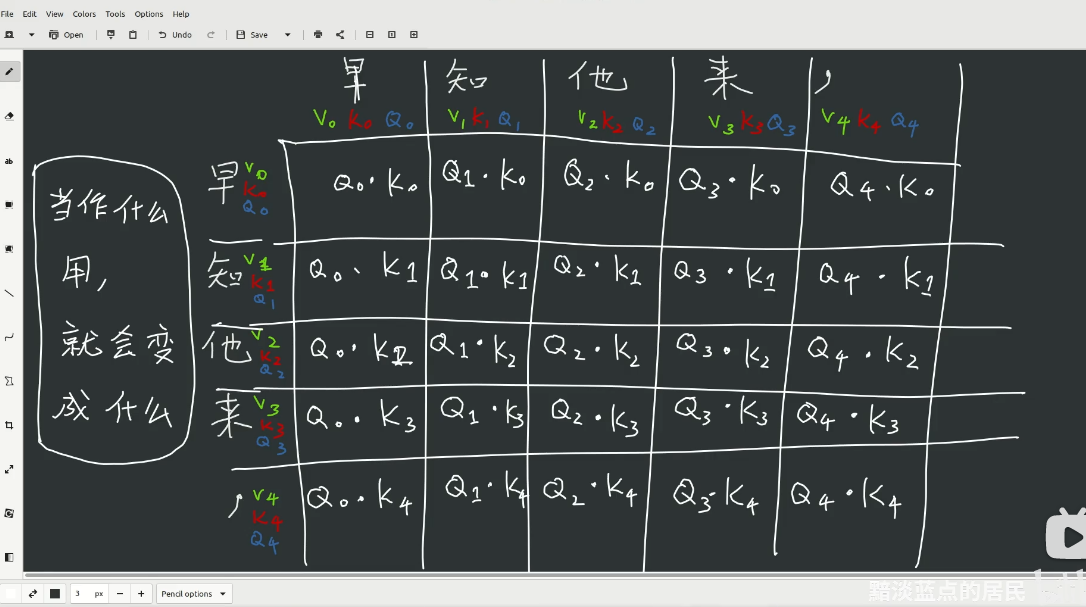 File Edit View Colors Tools Options Help
Open Undo Save
早 知 他 来 ，
V0 K0 Q0 V1 K1 Q1 V2 K2 Q2 V3 K3 Q3 V4 K4 Q4
当作什么
用，
就会变
成什么
早 V0 K0 Q0 Q0·K0 Q1·K0 Q2·K0 Q3·K0 Q4·K0
知 V1 K1 Q1 Q0·K1 Q1·K1 Q2·K1 Q3·K1 Q4·K1
他 V2 K2 Q2 Q0·K2 Q1·K2 Q2·K2 Q3·K2 Q4·K2
来 V3 K3 Q3 Q0·K3 Q1·K3 Q2·K3 Q3·K3 Q4·K3
， V4 K4 Q4 Q0·K4 Q1·K4 Q2·K4 Q3·K4 Q4·K4
3 px Pencil options
黯淡蓝点的居民